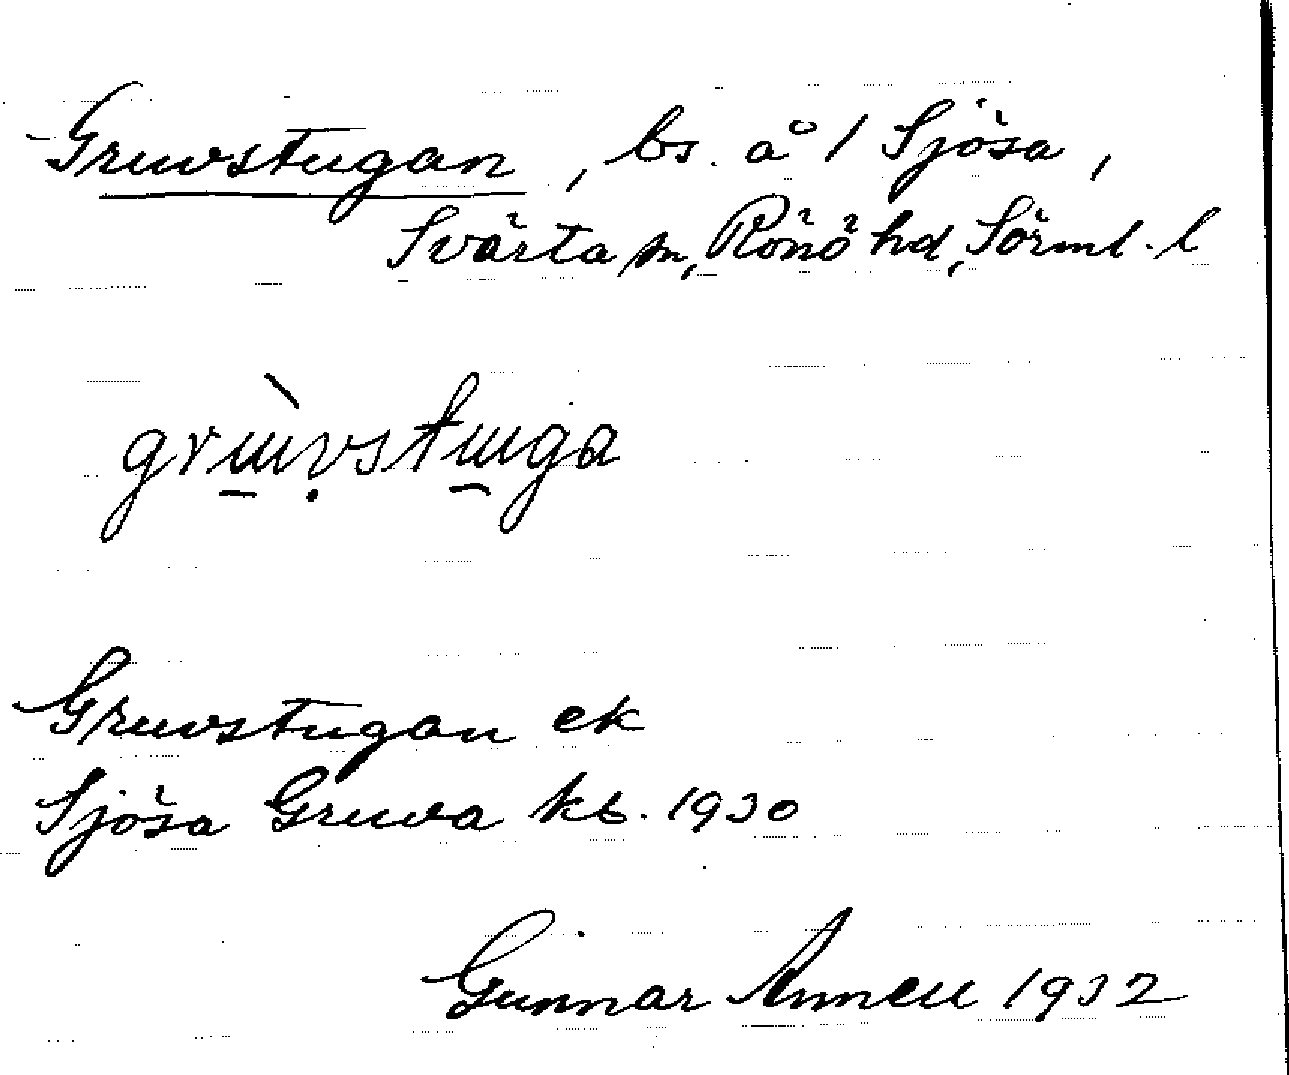 Gruvstugan, bs. å 1 Sjösa,
Svärta sn, Rönö hd, Sörml. l
grù̠ṿstu̠ga
Gruvstugan ek
Sjösa Gruva kb. 1930
Gunnar Annell 1932